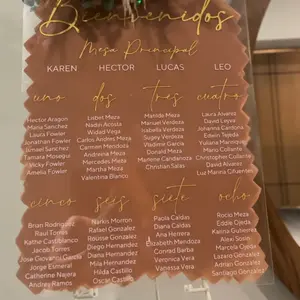 Bienvenidos
Mesa Principal
KAREN HECTOR LUCAS LEO
uno dos tres cuatro
Hector Aragon
Maria Sanchez
Laura Fowler
Jonathan Fowler
Ismael Sanchez
Tamara Moseley
Vicky Fowler
Amelia Fowler
Lisbet Meza
Nadin Acosta
Widad Vega
Carlos Andres Meza
Carmen Mendoza
Andreina Meza
Mercedes Meza
Martha Meza
Valentina Blanco
Matilda Meza
Samuel Verdoza
Isabella Verdoza
Sugey Verdoza
Vladimir Garcia
Donald Meza
Marlene Candanoza
Christian Salas
Laura Alvarez
David Leyva
Johanna Cardona
Edwin Tejeda
Viviana Collante
Mario Collante
Christopher Collante
David Alvarez
Luz Marina Cifuentes
cinco seis siete ocho
Brian Rodriguez
Raul Torres
Kathe Castiblanco
Jacob Torres
Jose Giovanni Garcia
Jorge Esmeral
Catherine Najera
Andrey Ramos
Narkis Morron
Rafael Gonzalez
Rousse Gonzalez
Diego Hernandez
Diana Hernandez
Dario Hernandez
Mila Hurtado
Hilda Castillo
Oscar Castillo
Paola Caldas
Diana Caldas
Ana Herrera
Elizabeth Mendoza
Conrad Barba
Veronica Vera
Vanessa Vera
Rocio Meza
Eddie Ojeda
Karina Gutierrez
Alexi Sosin
Marcela Ojeda
Lazaro Gonzalez
Adrian Gonzalez
Santiago Gonzalez